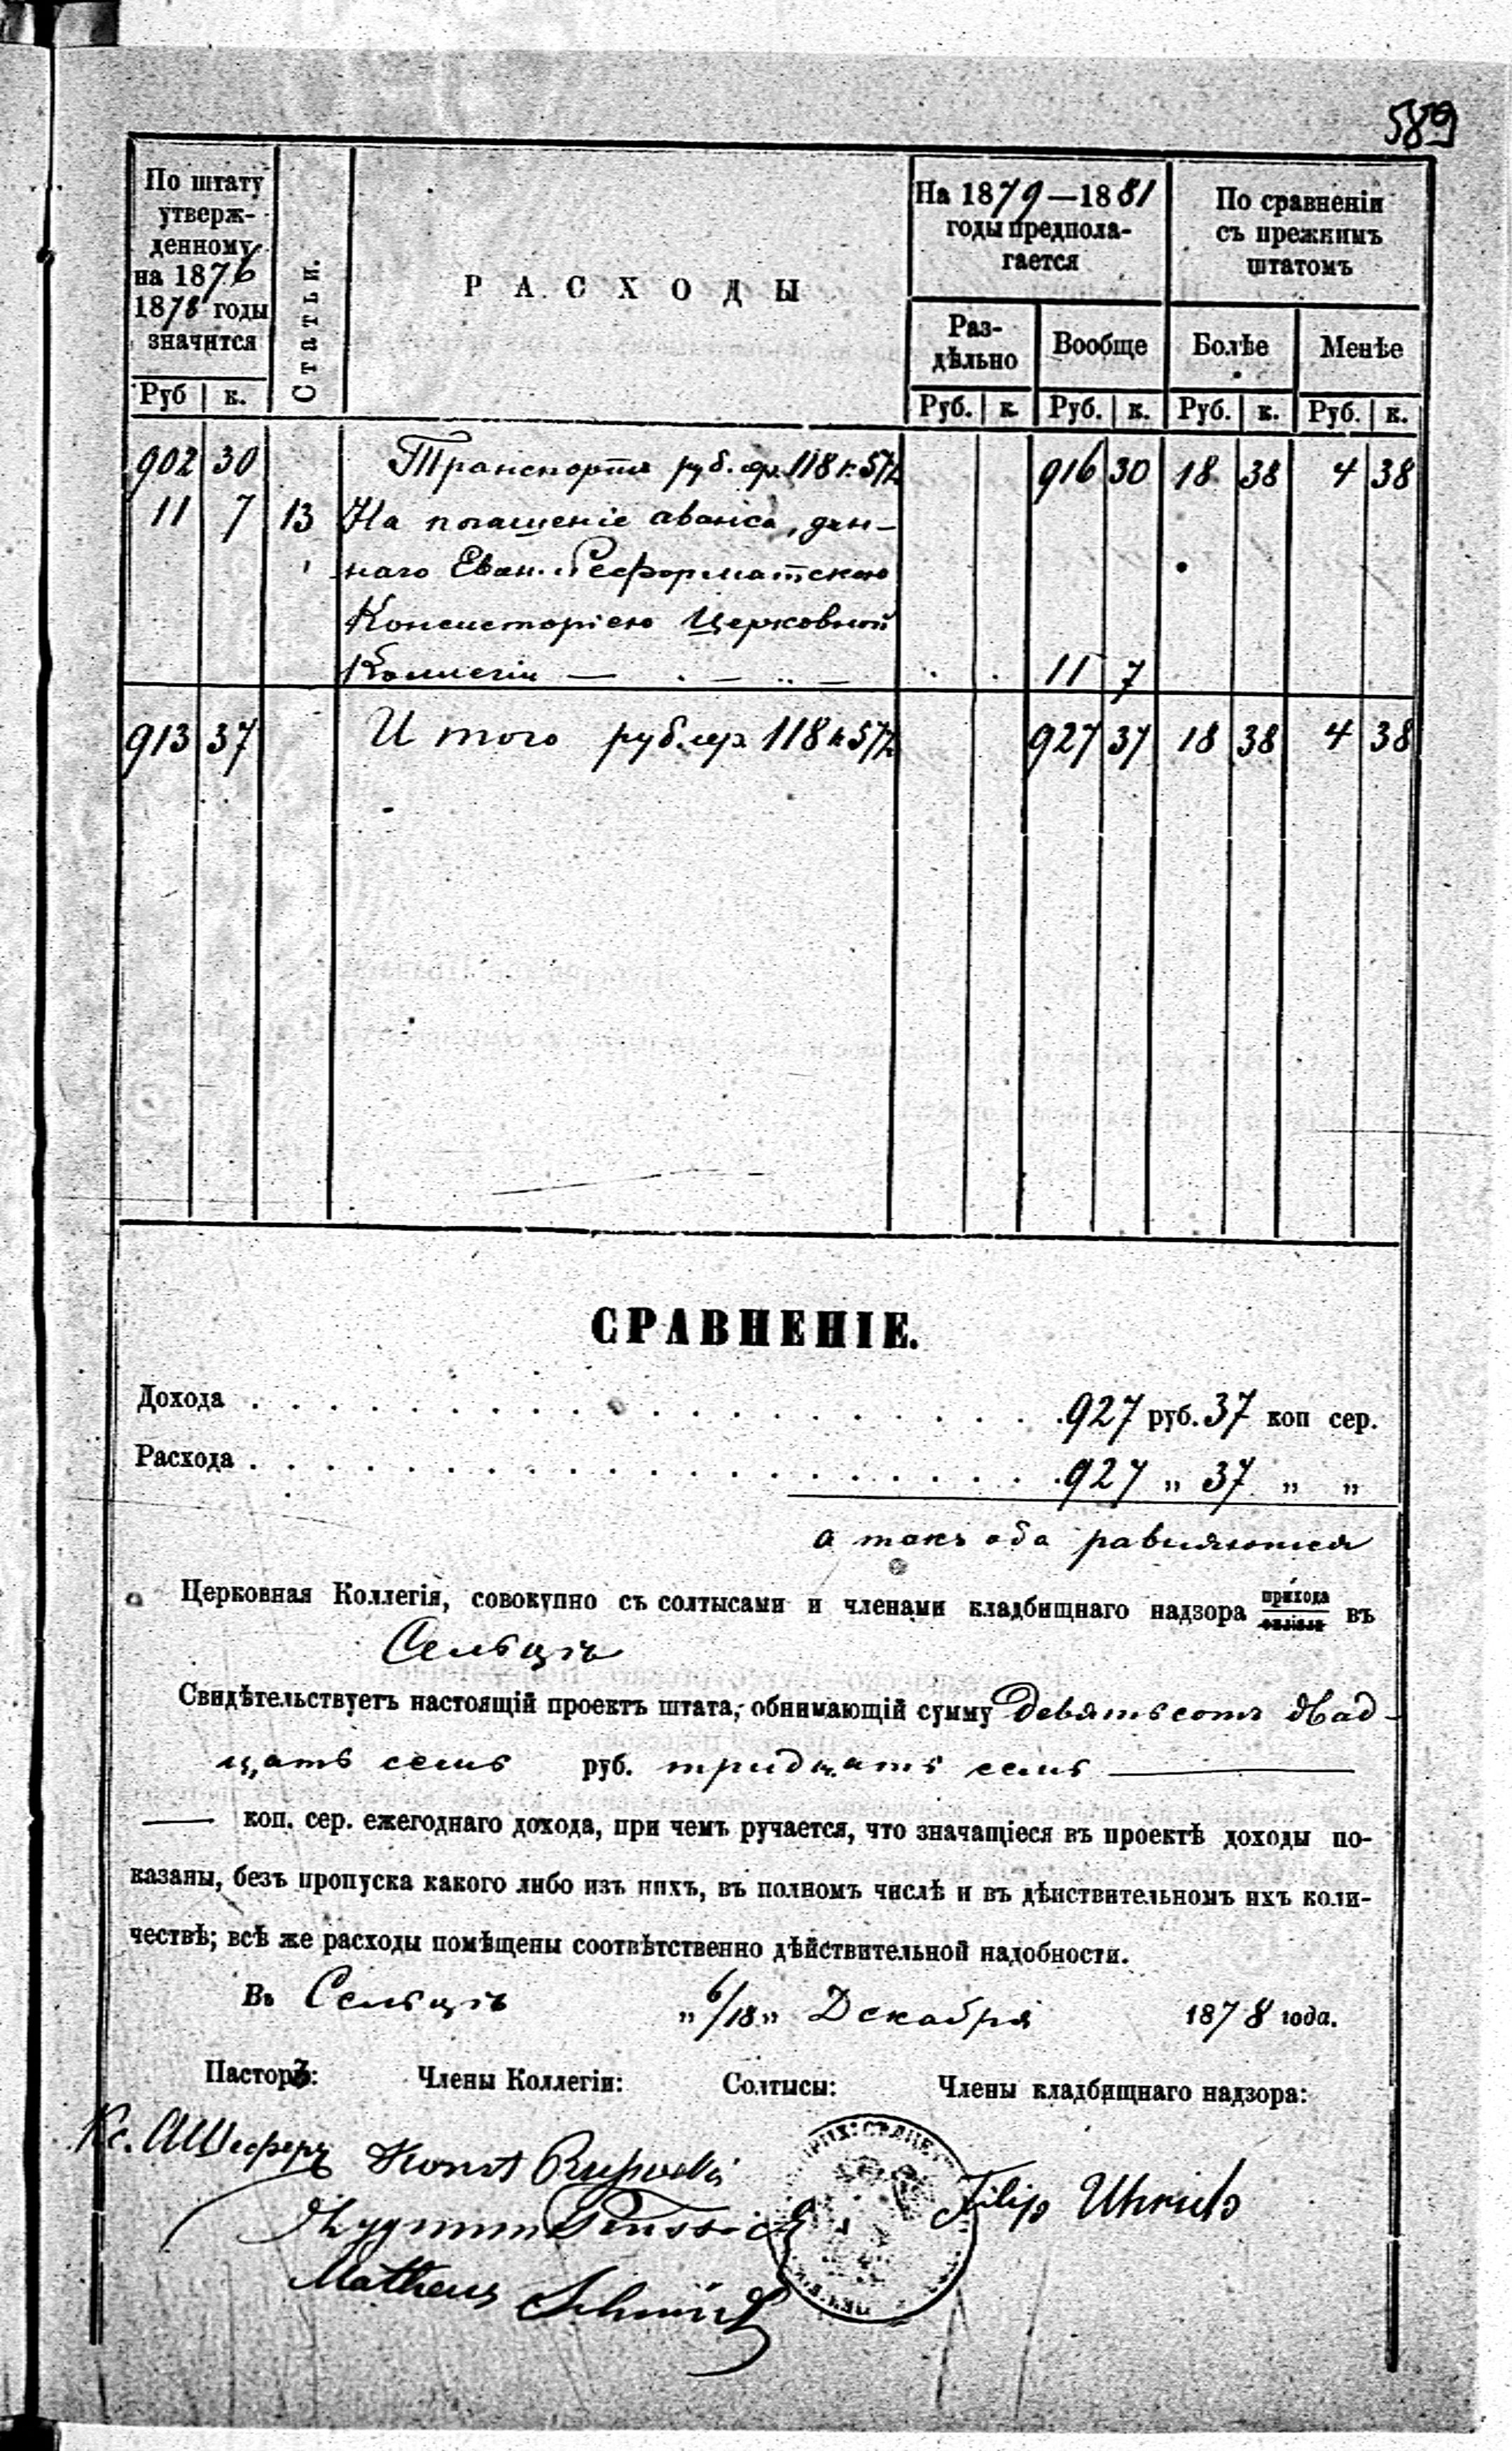 589
По штату
утверж-
денному
на 1876
1878 годы
значится
Руб к.
Статьи.
РАСХОДЫ
На 1879—1881
годы предпола-
гается
Раз-
дѣльно
Руб. к.
Вообще
Руб. к.
По сравненіи
съ прежнимъ
штатомъ
Болѣе
Руб. к.
Менѣе
Руб. к.
902 30 Транспортъ руб. ср. 118 к. 57½ 916 30 18 38 4 38
11 7 13 На погашеніе аванса, дан-
наго Еван. Реформатскою
Консисторіею Церковной
Коллегіи — 11 7
913 37 Итого руб. сер. 118 к 57½ 927 37 18 38 4 38
СРАВНЕНІЕ.
Дохода . . . . 927 руб. 37 коп сер.
Расхода . . . . 927 „ 37 „ „
а такъ оба равняются
Церковная Коллегія, совокупно съ солтысами и членами кладбищнаго надзора прихода филіяли въ
Сельцѣ
Свидѣтельствуетъ настоящій проектъ штата, обнимающій сумму Девятьсотъ двад-
цать семь руб. тридцать семь —
— коп. сер. ежегоднаго дохода, при чемъ ручается, что значащіеся въ проектѣ доходы по-
казаны, безъ пропуска какого либо изъ нихъ, въ полномъ числѣ и въ дѣиствительномъ ихъ коли-
чествѣ; всѣ же расходы помѣщены соотвѣтственно дѣйствительной надобности.
Въ Сельцѣ „6/18„ Декабря 1878 года.
Пасторъ: Члены Коллегіи: Солтысы: Члены кладбищнаго надзора:
Кс. А Шеферъ Konst
Filip Uhrich
Matheus Schmidt